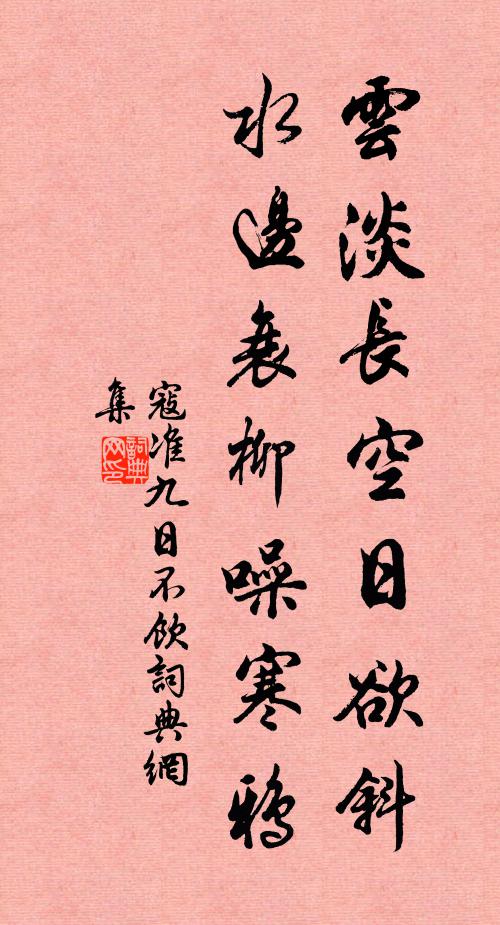 雲淡長空日欲斜
水邊衰柳噪寒鴉
寇准九日不飲詞典網
集
詞典網印